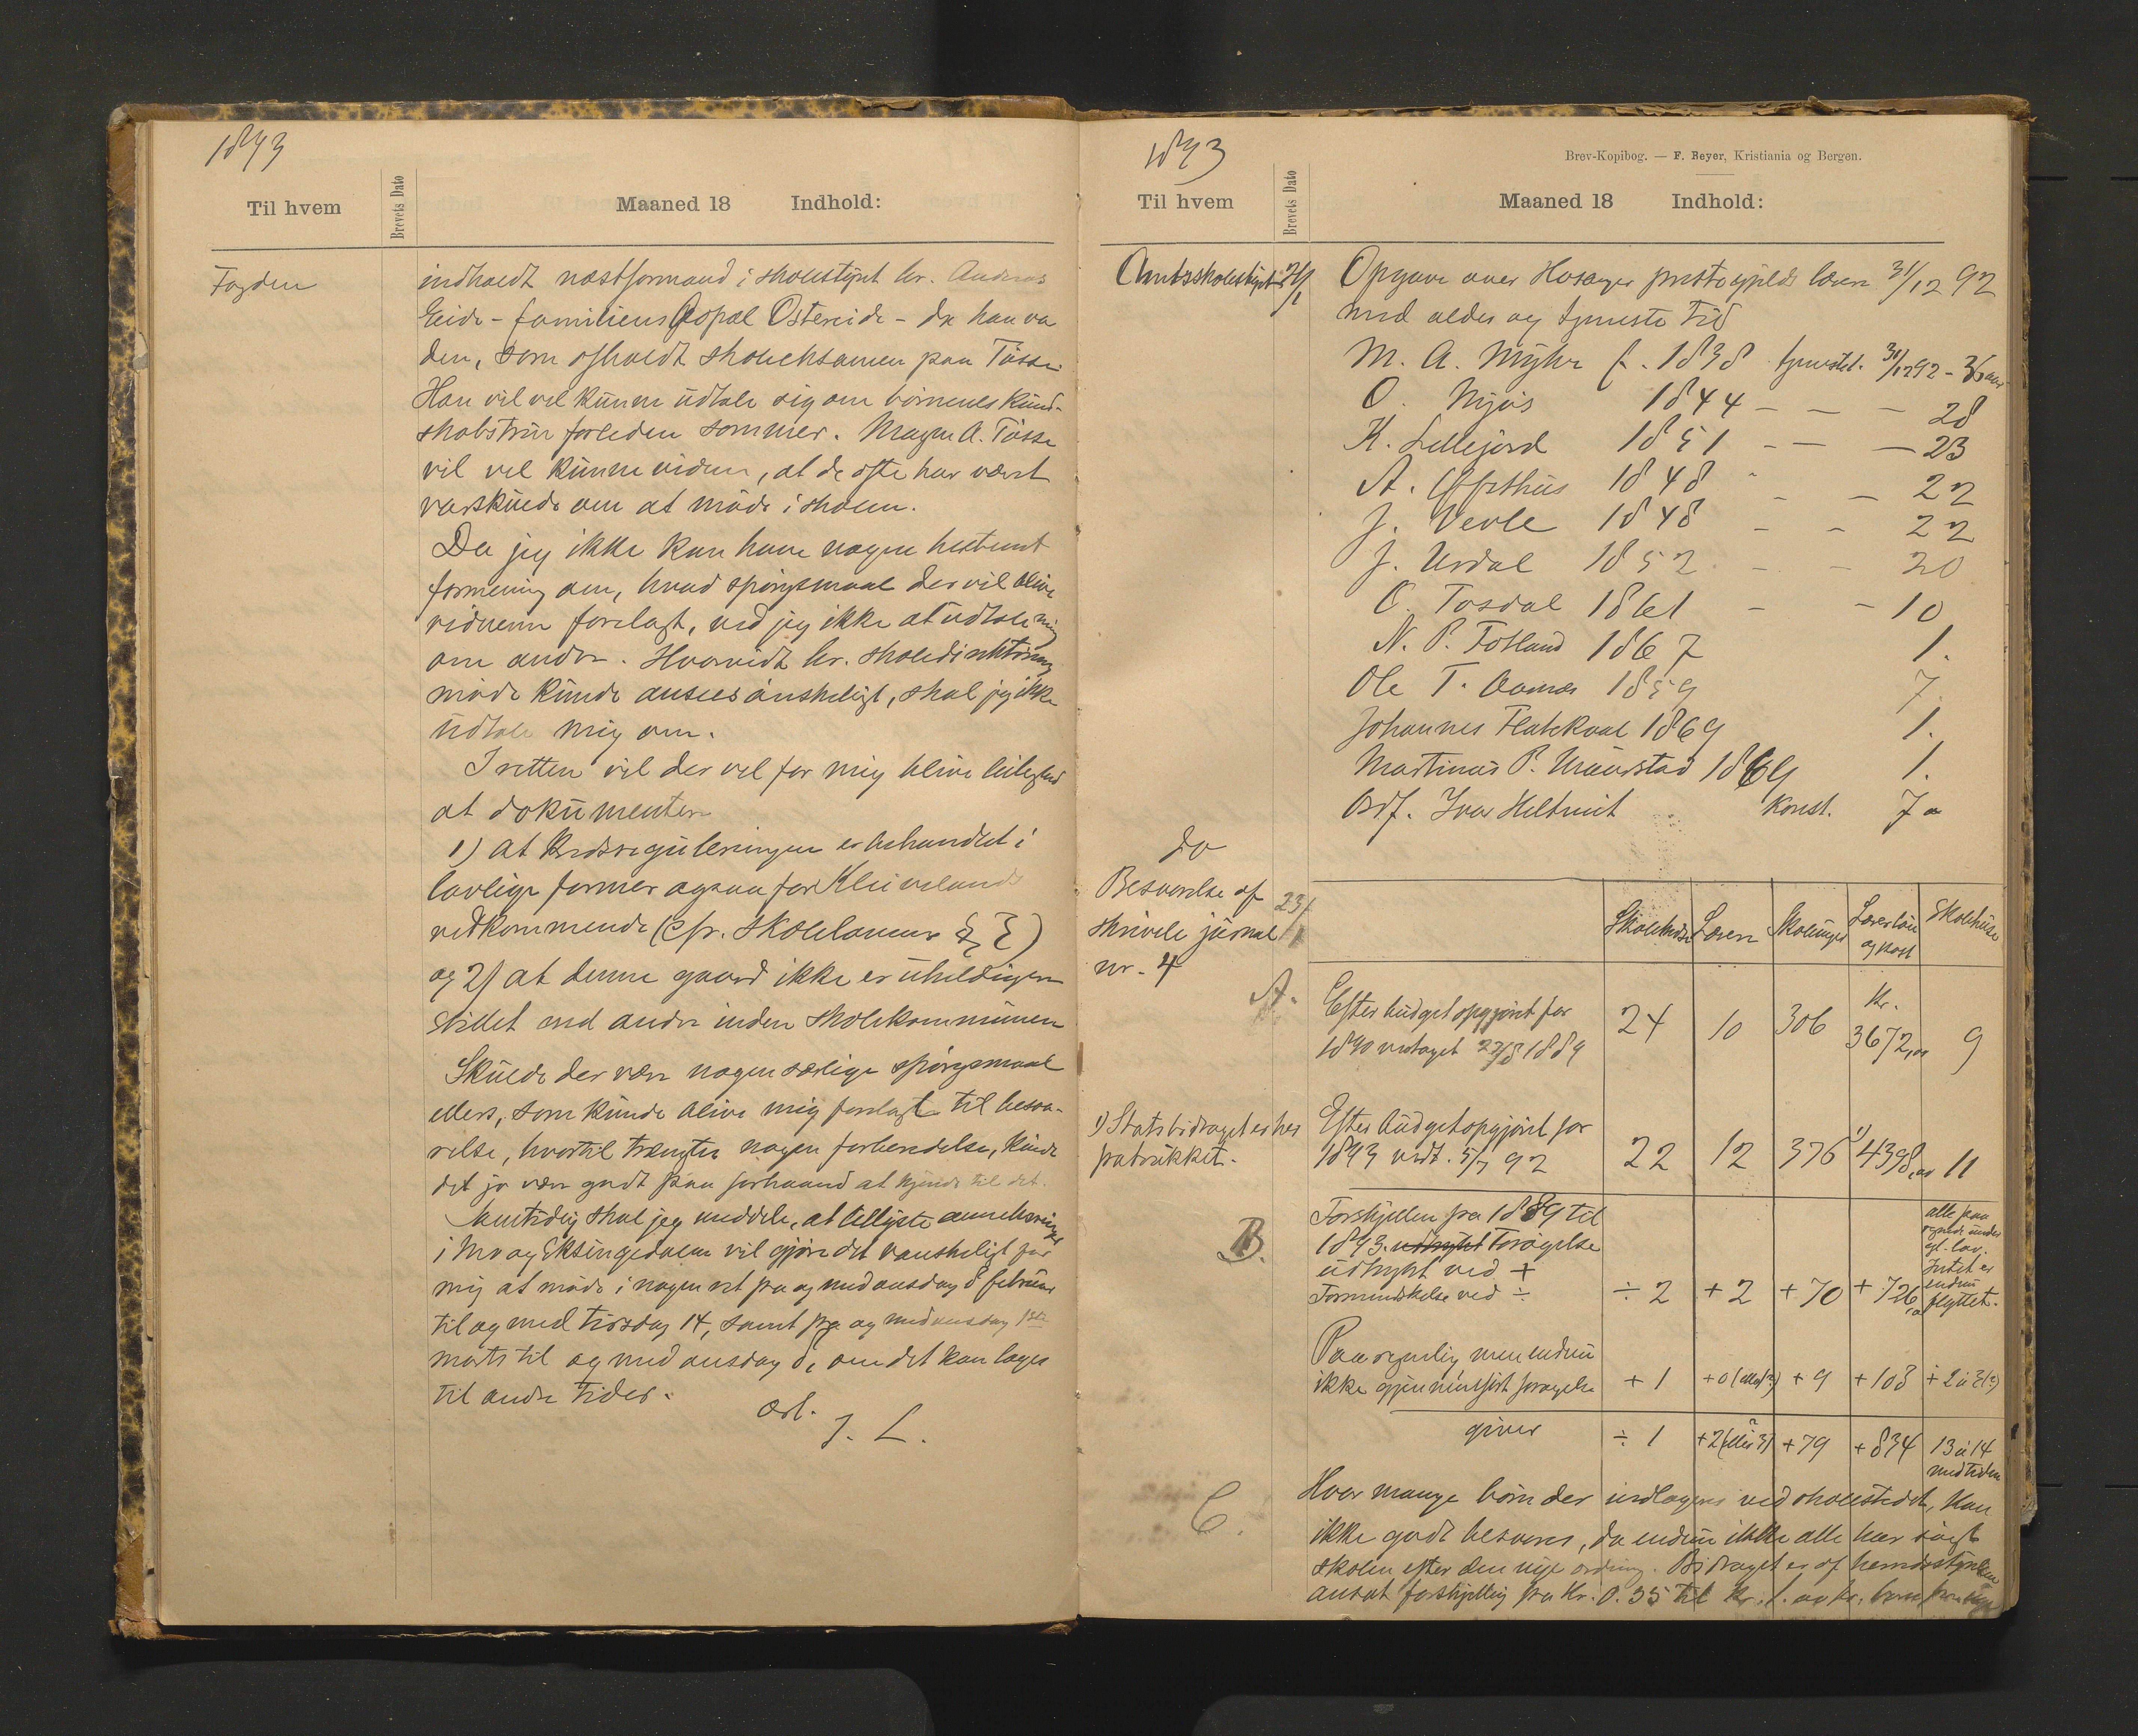 1893
Til hvem
Brevets Dato
Maaned 18 Indhold:
Fogden
indholdt næstformand i skolestyret hr. Andreas
Eide - familiens Opsal Ostereide - da han va
den, som afholdt skoleeksamen paa Tösse.
Han vil vel kunne udtale sig om börnenes kund-
skabstrin forleden sommer. Magne A. Tösse
vil vel kunne vidne, at de ofte har været
varskuede om at möde i skolen.
Da jeg ikke kan have nogen bestemt
formening om, hvad spörgsmaal der vil blive
vidnerne forelagt, ved jeg ikke at udtale mig
om andre. Hvorvidt hr. skoledirektörens
möde kunde ansees önskeligt, skal jeg ikke
udtale mig om.
I retten vil der vel for mig blive leilighed
at dokumentere
1) at kredsreguleringen er behandlet i
lovlige former ogsaa for Kleivelands
vedkommende (cfr. skoleloven § )
og 2) at denne gaard ikke er uheldigere
stillet end andre inden skolekommunen
Skulde der være nogen særlige spörgsmaal
ellers, som kunde blive mig forelagt til besva-
relse, hvortil trængtes nogen forberedelse, kunde
det jo være godt paa forhaand at kjende til det.
Samtidig skal jeg meddele, at tillyste
i Mo og Eksingedalen vil gjöre det vanskeligt for
mig at möde i nogen ret fra og med onsdag 8 februar
til og med tirsdag 14, samt fra og med onsdag 1ste
marts til og med onsdag 8, om det kan lages
til andre tider.
Ærb.
J. L.
1893
Brev-Kopibog. — F. Beyer, Kristiania og Bergen.
Til hvem
Brevets Dato
Maaned 18 Indhold:
Amtsskolestyret
Opgave over Hosanger præstegjelds lærere 31/12 92
med alder og tjeneste tid
M. A. Myhr f. 1838 tjenestet. 31/12 92 - 36 aar
O. Mjøs 1844 — — — 28
K. Lillejord 1851 — — — 23
A. 1848 - - — 22
J. Verle 1848 - - 22
J. Urdal 1852 - - 20
O. Tosdal 1861 - - 10
N. P. Fotland 1867 1.
Ole T. Aamæs 1859 7
Johannes Flatekval 1869 1.
Martinus P. 1869 1.
Ivar Heltveit Konst. 7 a
Do
Besvarelse af
skrivele jurnal
nr. 4
23/1
Skolekredse Lærere Skoleuger Lærerlön og kost Skolehuse
A.
Efter budgetopgjörelse for
1890 vedtaget 23/8 1889 24 10 306 Kr. 3672,00 9
1) Statsbidraget er her
fratrukket.
Efter budgetopgjört for
1893 vedt. 5/7 92 22 12 376 1) 4398,00 11
B.
Forskjellen fra 1889 til
1893. udtrykt Forögelse
udtrykt ved +
Formindskelse ved ÷ ÷ 2 + 2 + 70 + 726,00
alle paa
under
gl. lov.
Intet er
endnu
flyttet.
Paaregnelig men endnu
ikke gjennemfört forögelse + 1 + 0 (eller 1?) + 9 + 108 + 2 à 3 (?)
giver ÷ 1 + 2 (eller 3) + 79 + 834 13 à 14
med tiden
C.
Hvor mange börn der indlogeres ved skolestedet, kan
ikke godt besvares, da endnu ikke alle har sögt
skolen efter den nye ordning. Bidraget er af herredsstyrelsen
ansat forskjellig fra Kr. 0.35 til Kr. 1.00 pr. barn pr. uge